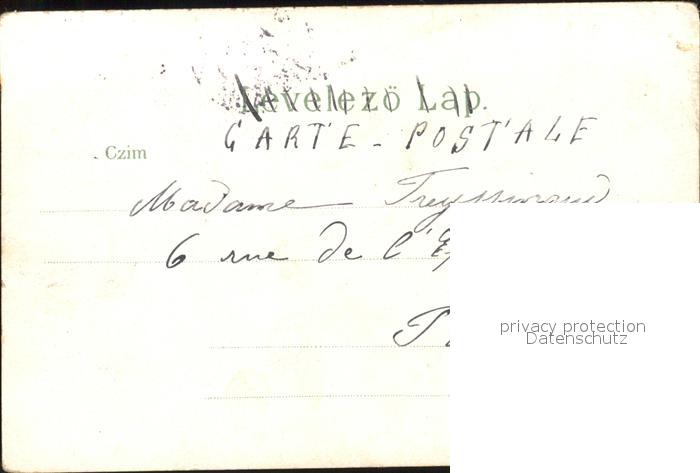 Levelező Lap.
CARTE - POSTALE
Czim
Madame
6 rue de l'
privacy protection
Datenschutz